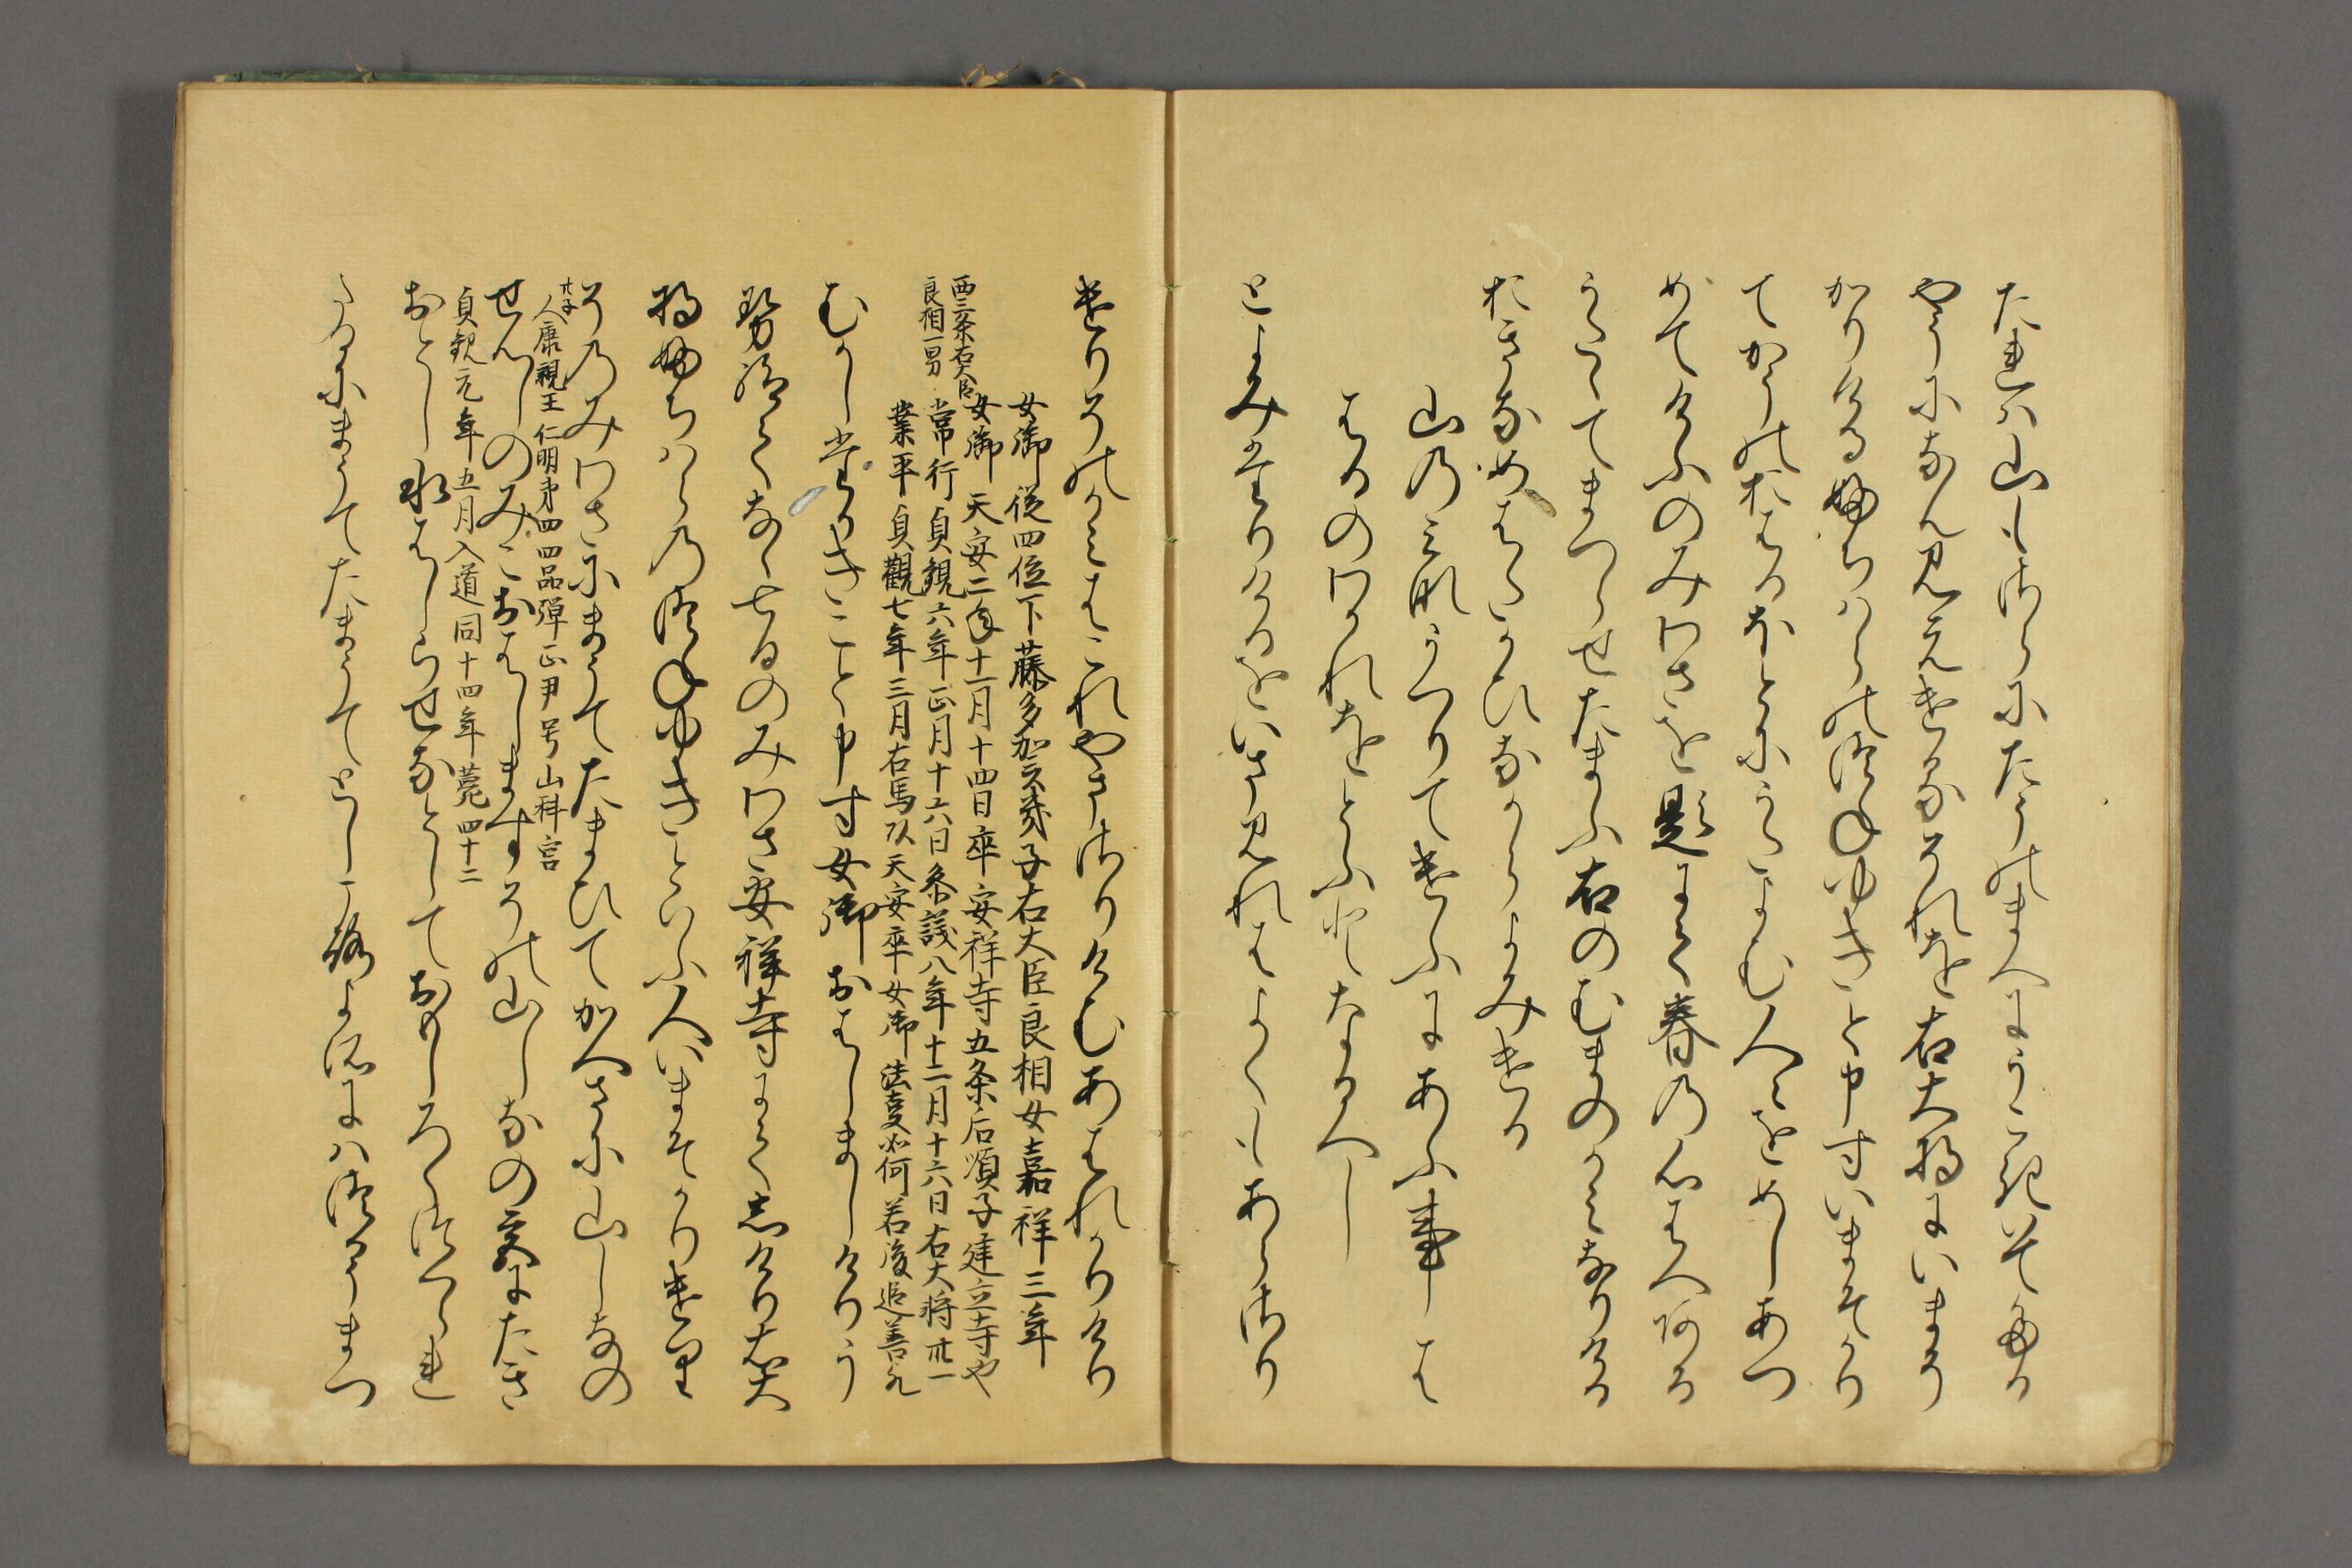 たれは山もさらにたうのまへにうこきいてたる
やうになん見えけるそれを右大将にいまそ
かりけるふちはらのつねゆきと申すいまそかり
てかうのおはるほとにうたよむ人々をめしあつ
めてけふのみわさを題にて春の心はへある
うたたてまつらせたまふ右のむまのかみなりける
おきなめはたかひなからよみける
山のみなうつりてけふにあふ事は
はるのわかれをとふとなるへし
とよみたりけるをいま見れはよくもあらさり
けりそのかみはこれやまさりけむあはれかりけり
女御 従四位下藤多加幾子右大臣良相女嘉祥三年
女御 天安二年十一月十四日卒 安祥寺五条后順子建立寺や
西三条右大臣
良相一男
常行 貞観六年正月十六日参議八年十二月十六日右大将卅一
業平 貞観七年三月右馬頭天安卒女御法事如何若後追善歟
むかしたかきこと申す女御おはしましけりう
せ給てなゝ七日のみわさ安祥寺にてしけり右大
将ふちはらのつねゆきといふ人いまそかりけり
そのみわさにまうてたまひてかへさに山しなの
廿子
人康親王 仁明第四四品弾正尹号山科宮
せんしのみこおはしますその山しなの宮にたき
貞観元年五月入道同十四年薨四十二
おとし水はしらせなとしておもしろくつくられ
たるにまうてたまうてとしころよそにはつかうまつ